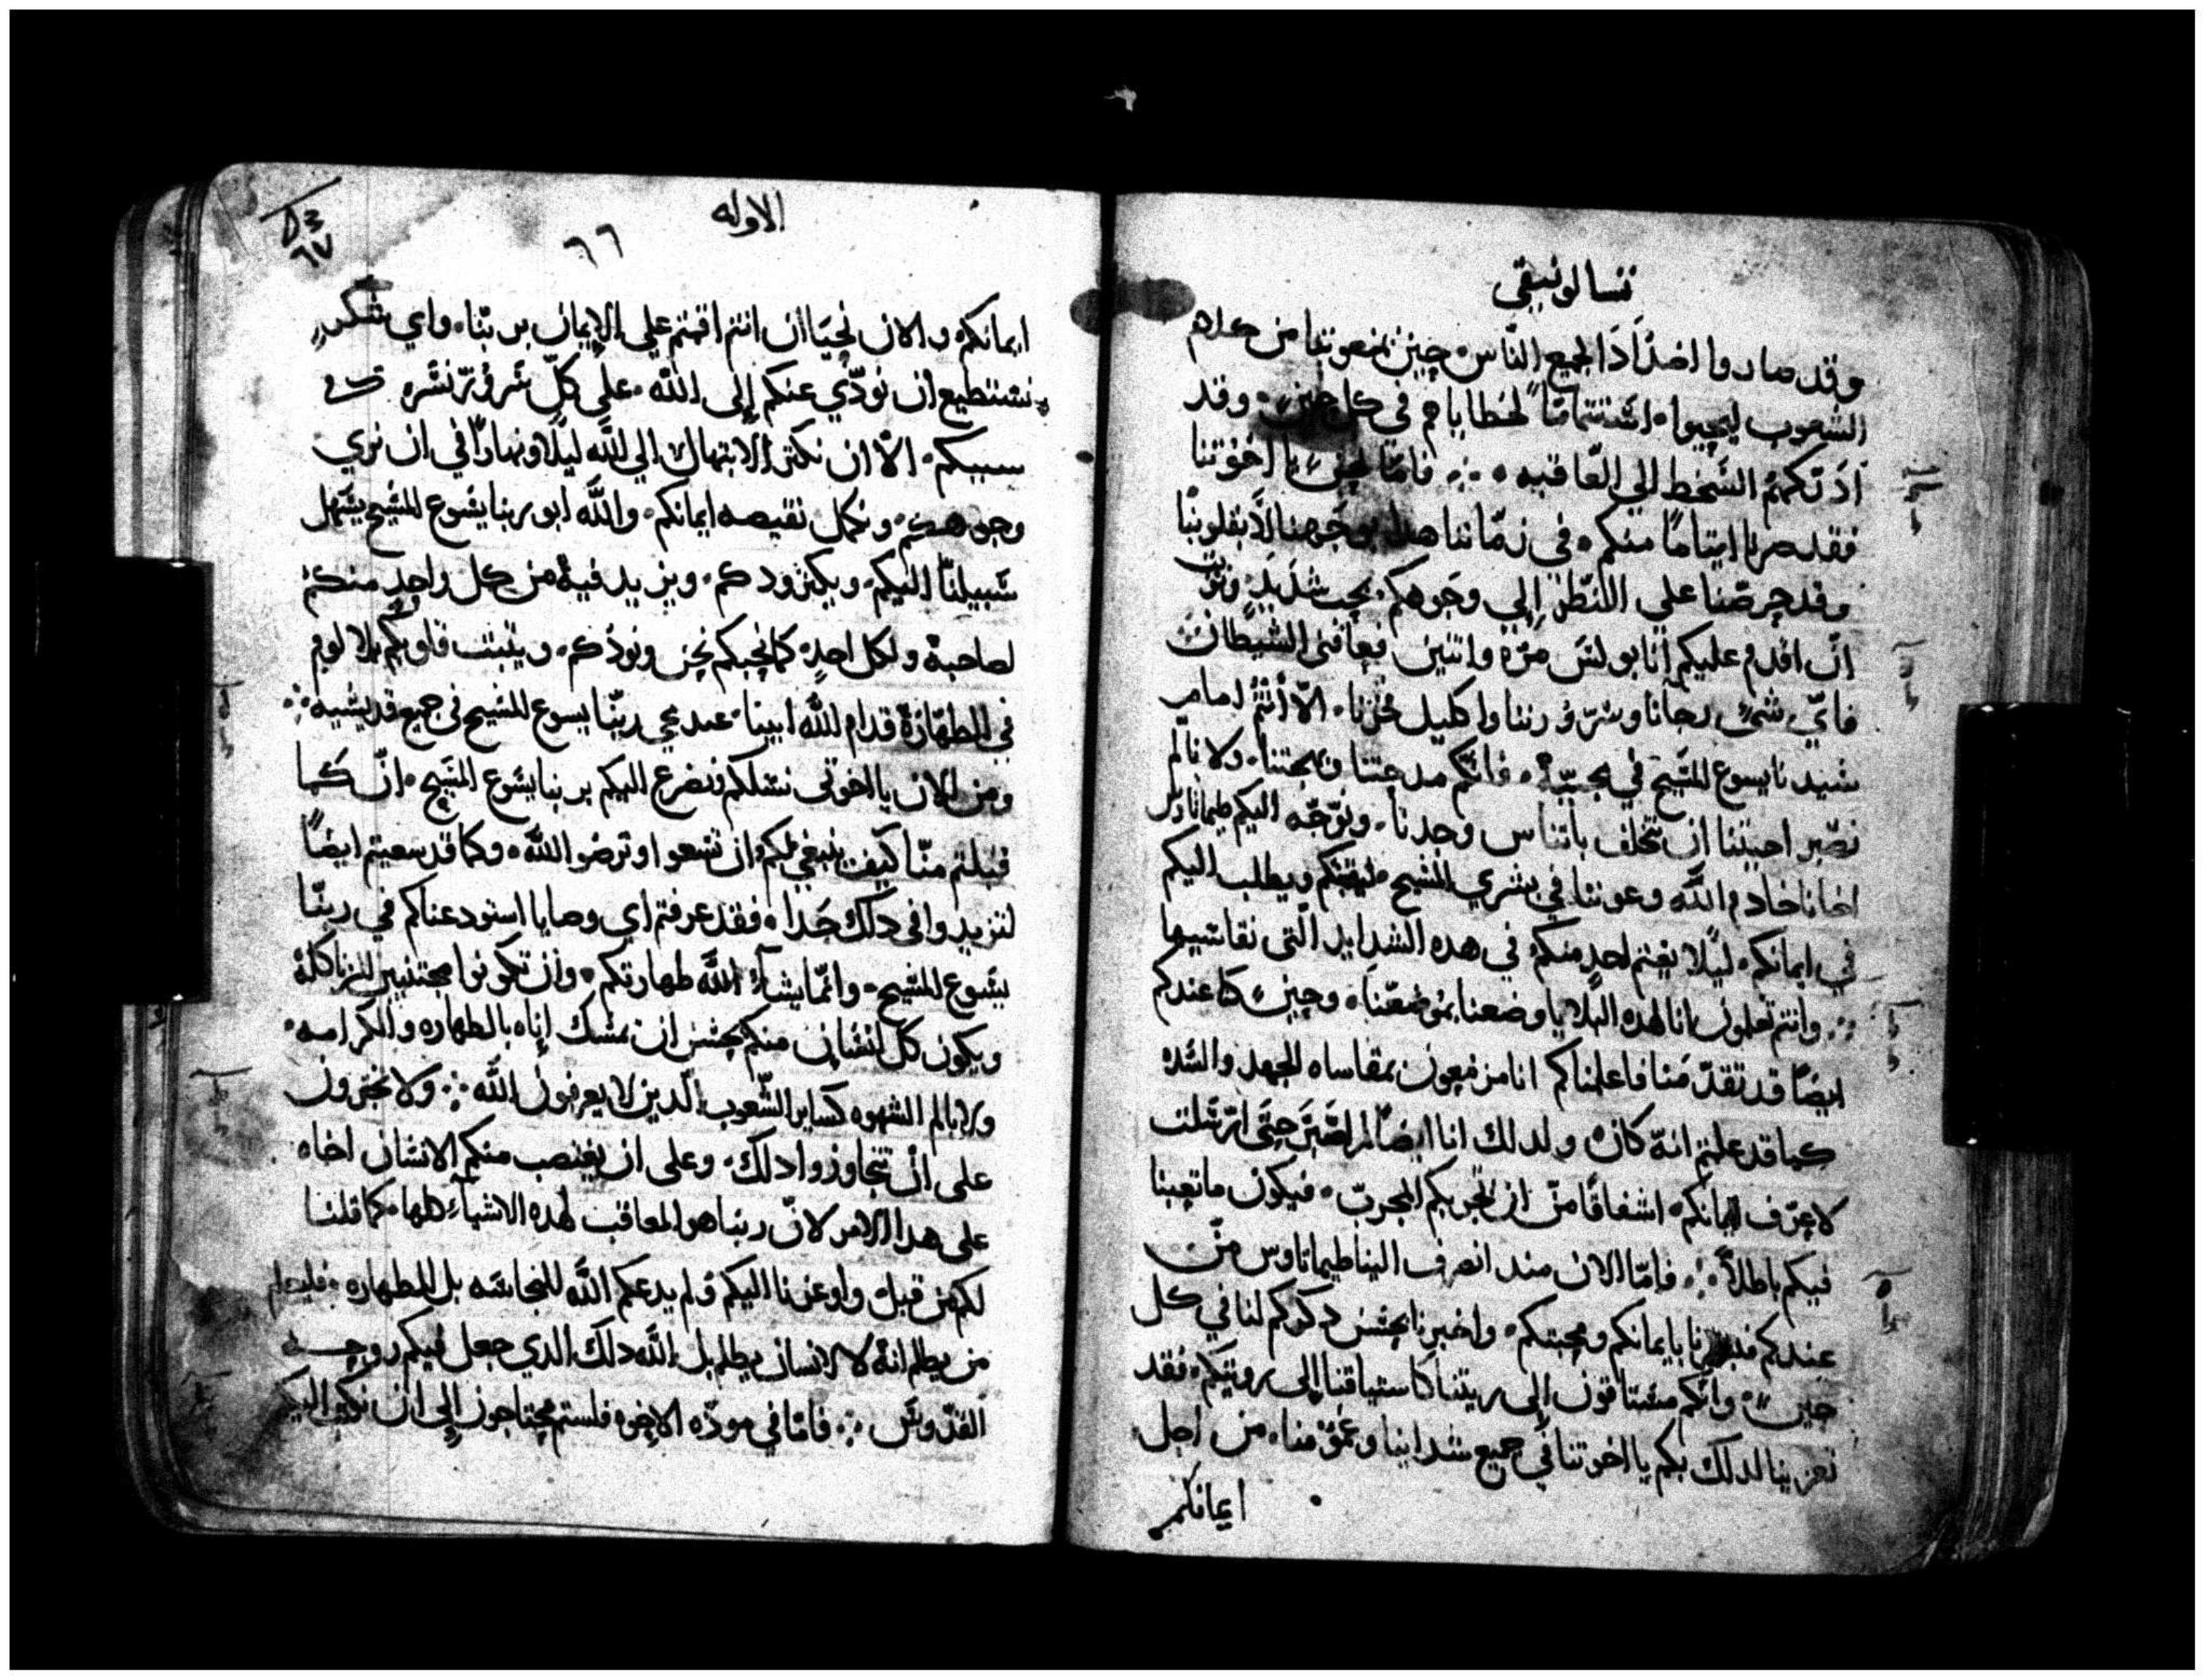 تسالونيقي
وقد صاروا اضدَادَا لجميع النّاس حِين يمنعوننا من كلام
الشعوب ليحيوا استتمامًا لخطاياهم في كل حِينٍ وقد
ادَرَكهمُ السَّخط الي العَاقبه فامّا نحنُ يا اخوَتنا
فقد صرنا ايتامًا منكم في زمَاننا هدا بوجَوهنا لا بقلوبنا
وقد حِرصّنا علي النّظرِ الِي وجَوهكم بحب شدَيدٍ وترب
ان اقدم عليكم انا بولسَ مرَه واتنين فعاقني الشيطان
فايّ شيءٍ رجانا وسرّورننا واكليل فخرنا الّا أنتمُ امام
سَيدنا يسوع المسَيح في مجيّهُ فانكم مدحِتنا وبهجتنا ولانا لم
نصّبر احببنا ان نتخلف باتناس وحدنا ونوَجّه اليكم طيماتاوس
اخانا خادم اللَّه وعوننا في بشري المسَيح ليثبتكم ويطلب اليكم
في ايمانكم ليلا يغتم احدٍ منكم في هده الشدايد الّتي نقاسيها
وانتم تعلمون انا لهده البلايا وضعنا بموضعنَا وحِينٍ كنا عندكم
ايضًا قد تقدّمنا فاعلمناكم انا مزمعون بمقاساه الجهد والشده
كما قد علمتم انهّ كان ولدلك انا ايضًا لم اصَبَر حِتّي ارسَلت
لاعِرّف ايمانكم اشفاقًا من ان يجربكم المجرب فيكون ما تعِبنا
فيكم باطلاً فامّا الان مند انصرف الينا طيماتاوس من
عندكم فبشرنا بايمانكم ومحِبتكم واخبرنا بحِسن دكركم لنا في كل
حِينٍ وانكم مشتاقون الي ريتنا كاستياقنا الي رويتكم فقد
تعزينا لدلك بكم يا اخوتنا في جميع شداينا وغمومنا من اجل
ايمانكم
الاوله
٦٦
٦٧
ايمانكم والان نحيَا ان انتم اقمتم علي الايمان بربنّا واي شكر
نستطيع ان نودّي عنكم إلي اللَّه علي كلّ سَرور نسَره
سببكم الّا ان نكتر الابتهال الي اللَّه ليلًا ونهارًا في ان نري
وجوهكم ونكمل نقيصه ايمانكم واللَّه ابو ربنا يسَوع المسَيح يسَهل
سَبيلنَا اليكم ويكتر ودكم ويزيد فيه من كل واحدٍ منكم
لصاحبهُ ولكل احدٍ كما نحِبكم نحِن ونودكم ويتبت قلوبكم بلا لوم
في الطهّارة قدام اللَّه ابينا عند مجي ربنّا يسوع المسَيح في جميع قديسَيه
ومن الان يا اخوتي نسَلكم ونضرع اليكم بربنا يسَوع المسَيح ان كما
قبلتم منّا كيف ينبغي لكم ان تسَعوا وترضوا اللَّه وكما قد سعيتم ايضًا
لتزيدوا في دلك جَدا فقد عرفتم اي وصايا استودعناكم في ربنّا
يسَوع المسَيح وانمّا يشآء اللَّه طهارتكم وان تكونوا مجتنبين الزنا كلهُ
ويكون كل انسَان منكم يحِسَن ان يمسَك اناه بالطهاره والكرامه
ولا بالم الشهوه كساير الشّعوب الدين لا يعرفون اللَّه ولا تجترون
علي ان تتجاوزوا دلك وعلي ان يغتصب منكم الانسَان اخاه
علي هدا الامر لان ربنا هو المعاقب لهده الاشيآءِ كلها كما قلنا
لكم من قبل واوعزنا اليكم ولم يدعكم اللَّه للنجاسَه بل للطهاره فليعلم
من يظلم انهُ لا لانسان يظلم بل اللَّه دلك الدي جعل فيكم روحِه
القدّوسَ فامّا في مودّه الاخوه فلستم محِتاجون إلي ان نكتب اليكم